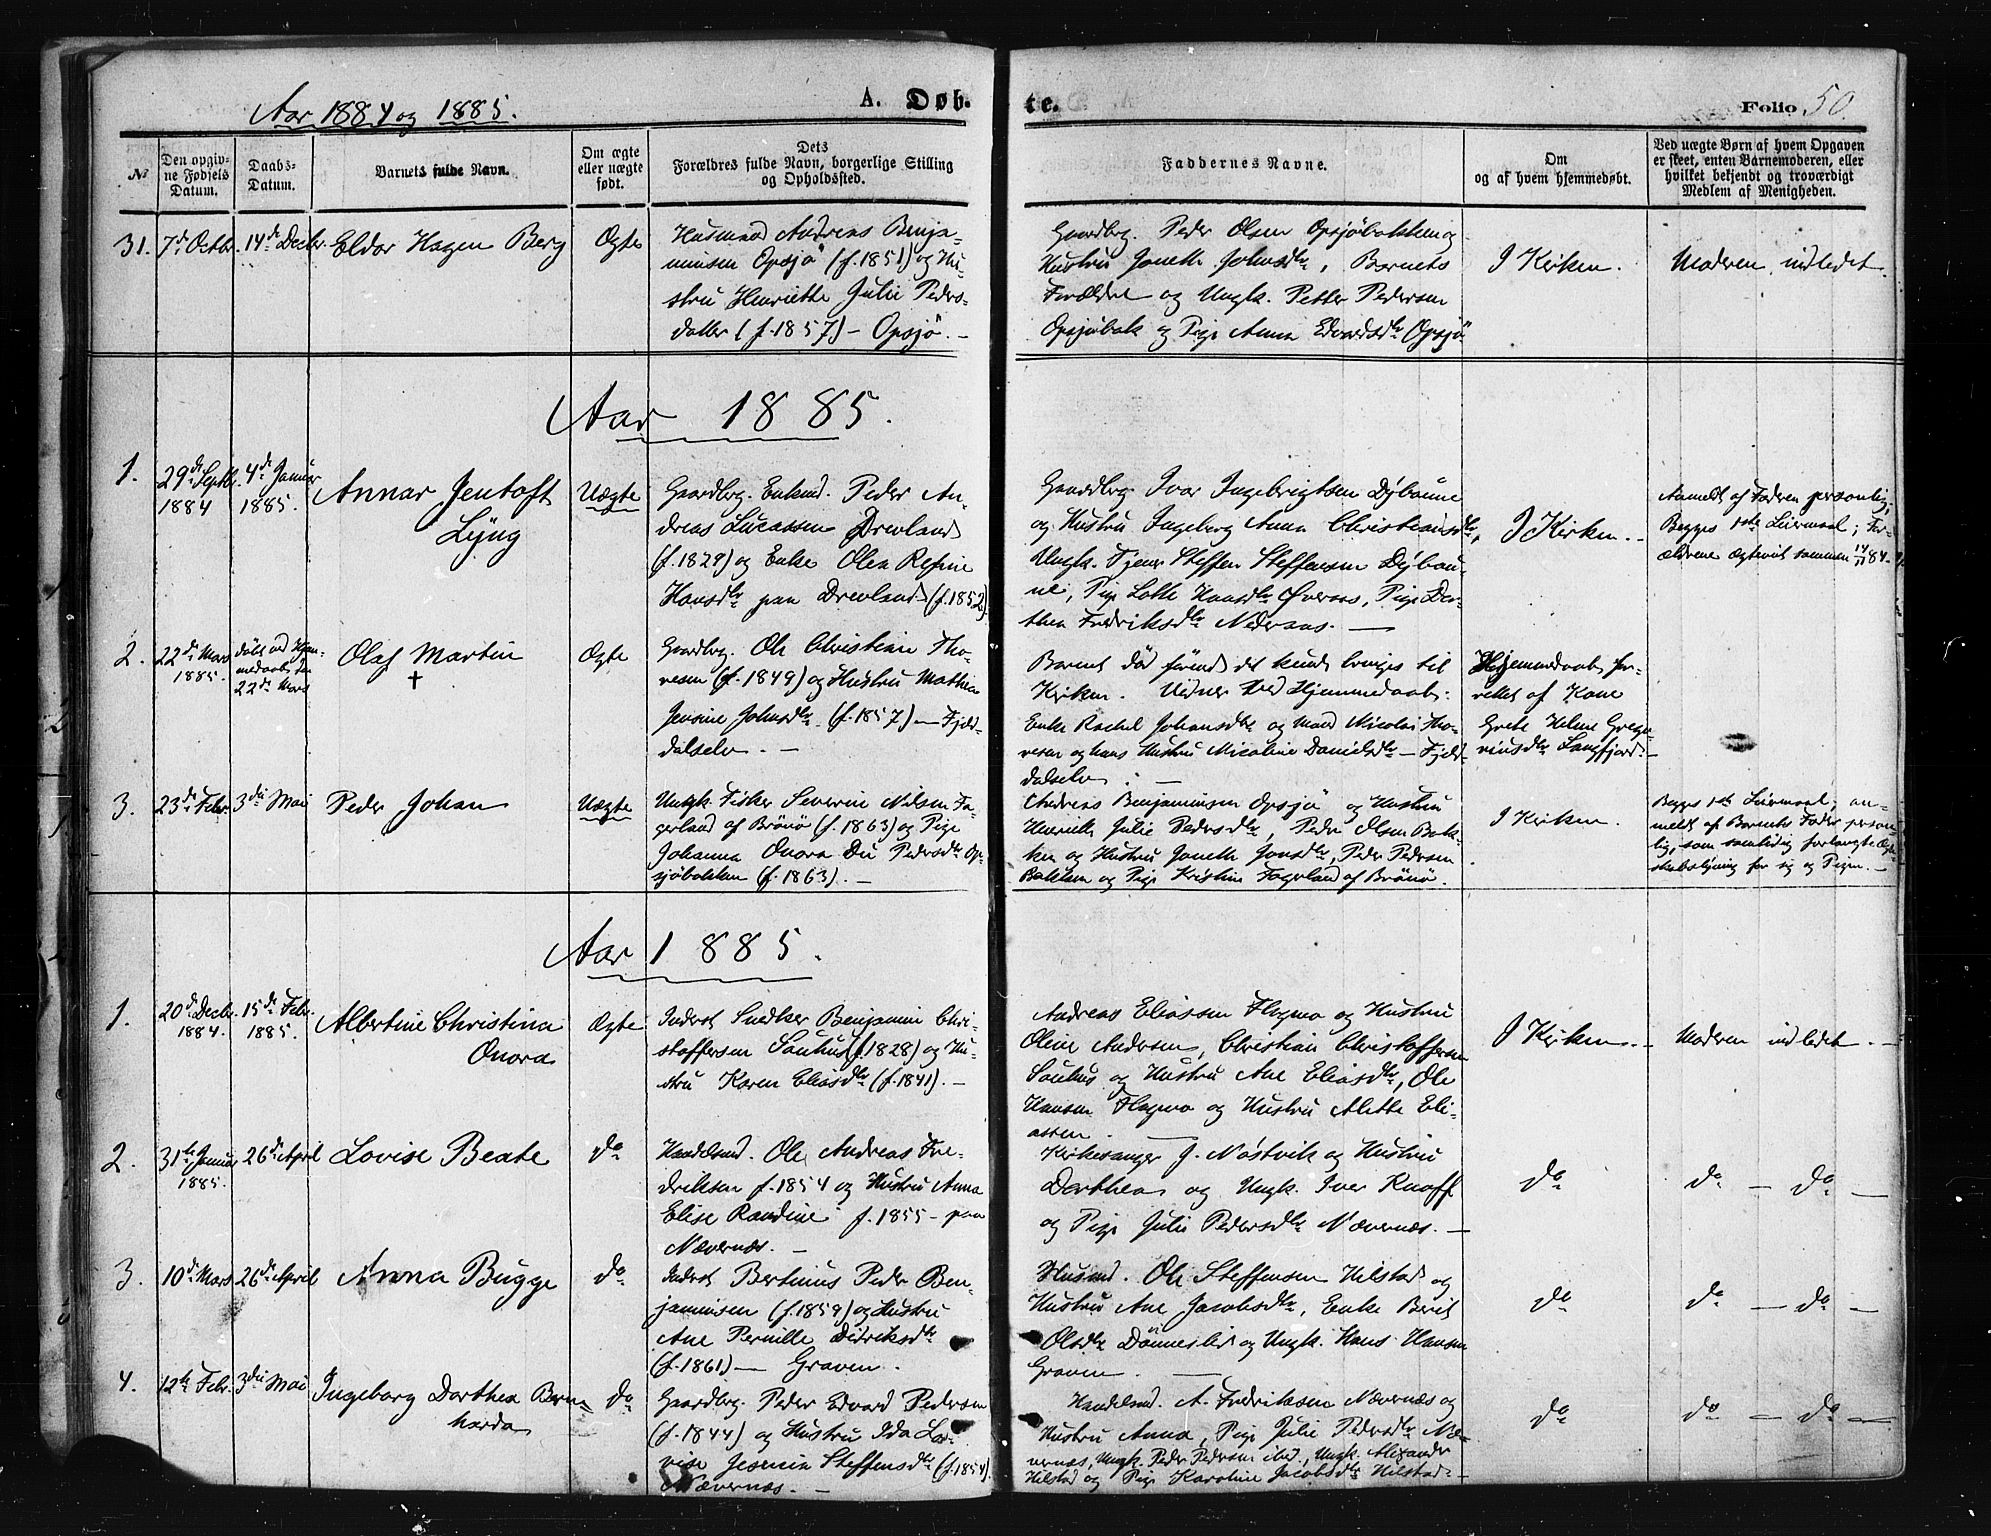 Aar 1884 og 1885.
A. Døb.
te.
Folio 50.
№
Den opgiv-
ne Fødsels
Datum.
Daabs-
Datum.
Barnets fulde Navn.
Om ægte
eller uægte
født.
Dets
Forældres fulde Navn, borgerlige Stilling
og Opholdssted.
Faddernes Navne.
Om
og af hvem hjemmedøbt.
Ved uægte Børn af hvem Opgaven
er skeet, enten Barnemoderen, eller
hvilket bekjendt og troværdigt
Medlem af Menigheden.
31.
7de Octbr.
14de Decbr.
Eldor Hagen Berg
Ægte
Husmand Andreas Benja-
minsen Opsjö (f. 1851) og Hu-
stru Henriette Julie Peders-
datter (f. 1857) - Opsjö. -
Gaardbrg. Peder Olsen Opsjöbakken og
Hustru Joneth Johnsdtr, Barnets
Forældre og Ungk. Petter Pedersen
Opsjöbak og Pige Anna Edvardsdtr Opsjö
I Kirken.
Moderen indledet
Aar 1885.
1.
29de Septbr.
1884
4de Januar
1885.
Annar Jentoft
Lyng
Uægte
Gaardbrg. Enkmd. Peder An-
dreas Lucassen Drevland
(f. 1829) og Enke Olea Regine
Hansdtr paa Drevland (f. 1852)
Gaardbrg. Ivar Ingebrigtsen Dybaune
og Hustru Ingeborg Anna Christiansdtr,
Ungk. Tjener Steffen Steffensen Dybau-
ne, Pige Lotte Hansdtr Øveraas, Pige Dor-
thea Fredriksdtr Nederaas. -
I Kirken. -
Anmeldt af Faderen personlig;
Begges 1ste Leiermaal; For-
ældrene ægteviet sammen 14/11 84.
2.
22de Mars
1885.
döbt ved Hjem-
medaab den
22de Mars
Olaf Martin
†
Ægte
Gaardbrg. Ole Christian Tho-
resen (f. 1849) og Hustru Mathea
Jensine Johnsdtr. (f. 1857) - Fjeld-
dalselv. -
Barnet död förend det kunde bringes til
Kirken. Vidner ved Hjemmedaab:
Enke Rachel Johansdtr og Mand Nicolai Tho-
resen og hans Hustru Nicoline Danielsdtr - Fjeld
dalselv. -
Hjemmedaab for-
rettet af Kone
Grete Helene Grego-
riusdtr Langfjord. -
3.
23de Febr.
3die Mai
Peder Johan
Uægte
Ungk. Fisker Severin Nilsen Fa-
gerland af Brönö (f. 1863) og Pige
Johanna Onora Du Pedersdtr Op-
sjöbakken (f. 1863). -
Andreas Benjaminsen Opsjö og Hustru
Henrikke Julie Pedersdtr, Peder Olsen Bak-
ken og Hustru Joneth Jonsdtr, Peder Pedersen
Bakken og Pige Kristine Fagerland af Brönö.
I Kirken.
Begges 1ste Leiermaal; an-
meldt af Barnets Fader person-
lig, som samtidig forlangte Ægte-
skabslysning for sig og Pigen. -
Aar 1885.
1.
20de Decbr.
1884.
15de Febr.
1885.
Albertine Christina
Onora
Ægte
Inderst Snedker Benjamin Chri-
stoffersen Sauhus (f. 1828) og Hu-
stru Karen Eliasdtr (f. 1841). -
Andreas Eliassen Flagmo og Hustru
Oline Andersen, Christian Christoffersen
Sauhus og Hustru Ane Eliasdtr, Ole
Hansen Flagmo og Hustru Alette Eli-
assen. -
I Kirken. -
Moderen indledet. -
2.
31te Januar
1885.
26de April
Lovise Beate
do
Handelsmd. Ole Andreas Fre-
driksen f. 1854 og Hustru Anna
Elise Randine f. 1855 - paa
Nævernæs. -
Kirkesanger J. Nöstvik og Hustru
Dorthea og Ungk. Iver Knoff
og Pige Julie Pedersdtr Nævernæs. -
do
do - do -
3.
10de Mars
26de April
Anna Bugge
do
Inderst Bertinus Peder Ben-
jaminsen (f. 1859) og Hustru
Ane Pernille Didriksdtr
(f. 1861) - Graven.
Husmd. Ole Steffensen Hilstad og
Hustru Ane Jacobsdtr, Enke Berit
Olsdtr Dönneslid og Ungk. Hans Hansen
Graven. -
do
do - do -
4.
12te Febr.
3die Mai
Ingeborg Dorthea Bern-
harda
do
Gaardbrg. Peder Edvard Pedersen
(f. 1844) og Hustru Ida Lo-
vise Jesmin Steffensdtr (f. 1854)
Nævernæs. -
Handelsmd. A. Fredriksen Nævernæs og
Hustru Anna, Pige Julie Pedersdtr Næ-
vernæs, Ungk. Peder Pedersen ibid., Ungk. Alexander
Hilstad og Pige Karoline Jacobsdtr Hilstad. -
do
do - do -